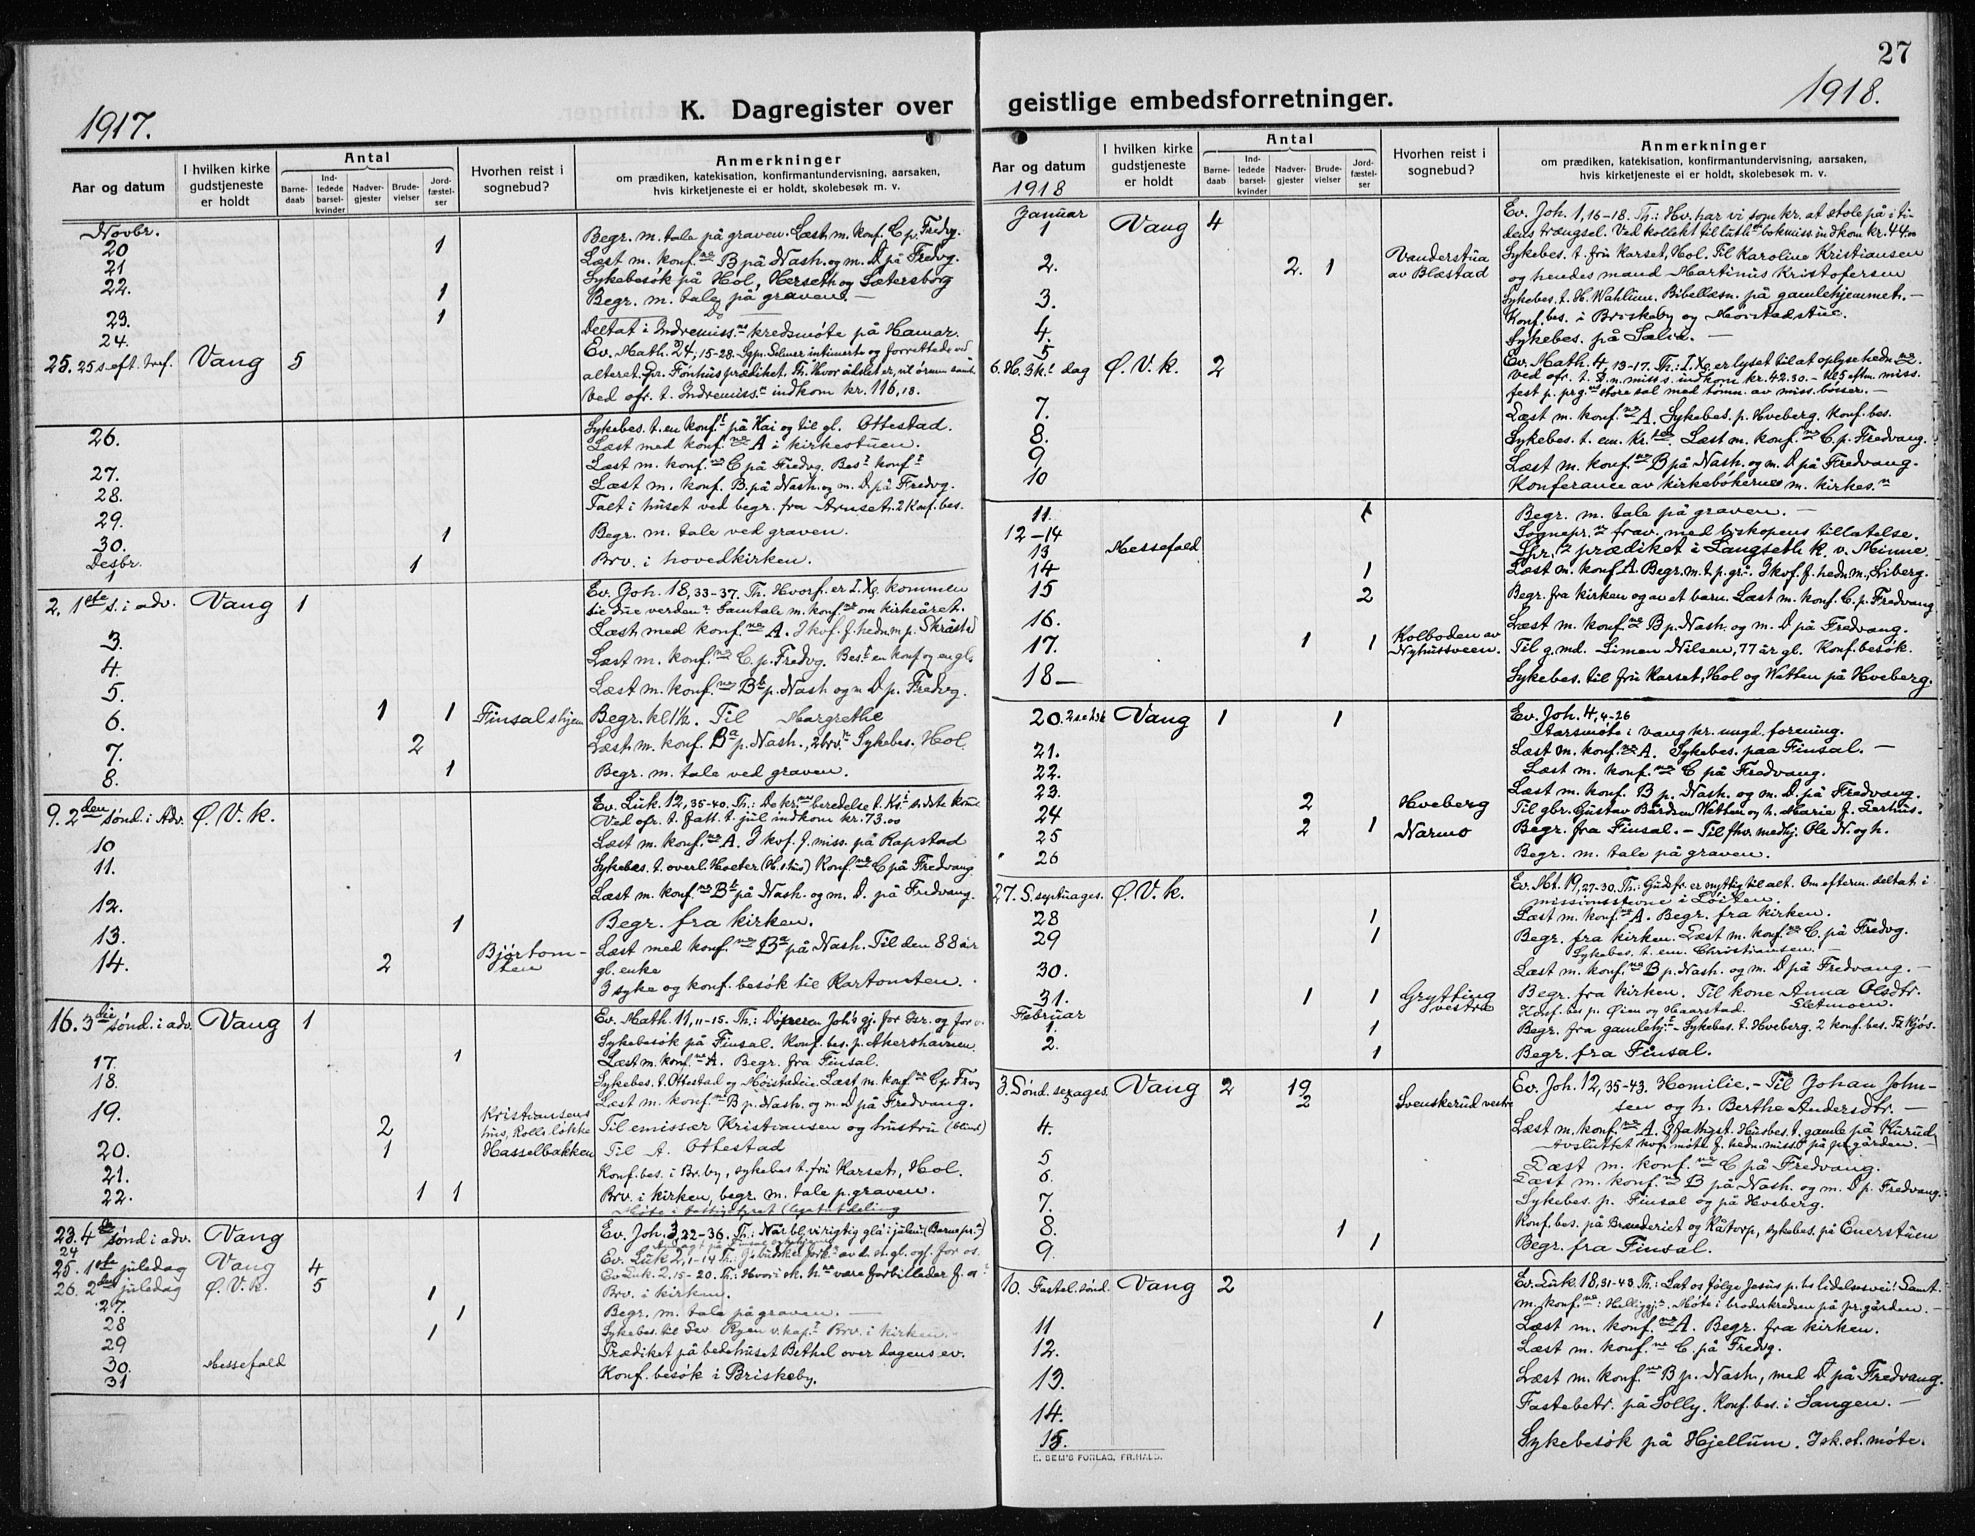 27
1917.
K. Dagregister over
geistlige embedsforretninger.
1918.
Aar og datum
I hvilken kirke gudstjeneste er holdt
Antal
Barnedaab
Indledede barselkvinder
Nadvergjester
Brudevielser
Jordfæstelser
Hvorhen reist i sognebud?
Anmerkninger
om prædiken, katekisation, konfirmantundervisning, aarsaken,
hvis kirketjeneste ei er holdt, skolebesøk m. v.
Novbr.
20 1 Begr. m. tale på graven. Læst m. konf. C p. Fredvg.
21 Læst m. konf.ne B på Nash. og m. D på Fredvg.
22. 1 Sykebesök på Hol, Herseth og Sætersborg
Begr. m. tale på graven. —
23. 1 Do
24. Deltat i Indremiss.ns kredsmøte på Hamar.
25. 25 s. eft. tref. Vang 5 Ev. Math. 24, 15-28.
Ved ofr. t. Indremiss.n indkom kr. 116,18.
26. Sykebes. t. en konf.t på Kai og til gl. Ottestad.
Læst med konf.ne A i kirkestuen.
27. Læst m. konf.ne C på Fredvg. Bes.t konf.t
28. Læst m. konf. B. på Nash. og m. D på Fredvg.
29. Talt i huset ved begr. fra Arnset. 2 konf. bes.
30. 1 Begr. m. tale ved graven.
Desbr.
1 1 Brv. i hovedkirken.
2. 1ste s. i adv. Vang 1 Ev. Joh. 18, 33-37. Th. Hvorf. er I. Xs. kommen
Samtale m. konf.ne om kirkeåret.
3. Læst med konf.ne A. 2 kof. f. hednm p. Skråstad
4. Læst m. konf.ne C. p. Fredvg. Bes.t en konf og en gl.
5. Læst m. konf.ne Bb p. Nash og m D p. Fredvg.
6. 1 1 Finsalshjem Begr. kl 1½. Til Margrethe
7. 2 Læst m. konf. Ba p. Nash., 2 brv.r Sykebes. Hol.
8. 1 Begr. m. tale ved graven.
9. 2den sønd. i Adv. Ø. V. k. Ev. Luk. 12, 35-40. Th.:
Ved ofr. t. fatt. t. jul indkom kr. 73.00
10 Læst m. konf.ne A. 2 kof. f. miss. på Rapstad
11. Sykebes. t. overl. Hoeter (H.s hus) Konf.ne C på Fredvang
12. Læst m. konf.ne Bb på Nash. og m. D. på Fredvang.
13. 1 Begr. fra kirken.
14. 2 Bjørtomten Læst med konf.ne Ba på Nash. Til den 88 år
gl. enke
3 syke og konf. besök til Kartomten.
16. 3die sønd. i adv. Vang 1 Ev. Math. 11, 11-15. Th.:
Sykebesök på Finsal. Konf. bes. p. Akershavnen.
17. 1 Læst m. konf.ne A. Begr. fra Finsal.
18. Sykebes. t. Ottestad og Møistadeie. Læst m. konf.ne C p. Frvg
19. Læst m. konf.ne B p. Nash. og m. D på Fredvang.
2 Kristiansens hus, Rolls løkke Til emissær Kristiansen og hustru (blind)
20. 1 Hasselbakken Til A. Ottestad
21. Konf. bes. i Br.by, sykebes t. fru Karset, Hol.
22. 1 1 Brv. i kirken, begr. m. tale p. graven.
23. 4de sønd i adv. Vang Ev. Joh. 3, 22-36. Th.:
24
25. 1ste juledag Vang 4 Ev. Luk. 2, 1-14 Th.:
26. 2den juledag Ø. V. k. 5 Ev Luk. 2, 15-20. Th.:
27. 1 Brv. i kirken.
28 1 Begr. m. tale på graven. —
29 1 Sykebes. til Gev Ryen v. kap.t Brv. i kirken.
30. Messefald Prædiket på bedehuset Bethel over dagens ev.
31 Konf. besök i Briskeby.
Aar og datum
1918
I hvilken kirke gudstjeneste er holdt
Antal
Barnedaab
Indledede barselkvinder
Nadvergjester
Brudevielser
Jordfæstelser
Hvorhen reist i sognebud?
Anmerkninger
om prædiken, katekisation, konfirmantundervisning, aarsaken,
hvis kirketjeneste ei er holdt, skolebesøk m. v.
Januar
1 Vang 4 Ev. Joh. 1, 16-18. Th.: Hv. har vi som kr. at stole på i tidens trængsel. Ved kollekt til luth. bokmiss. indkom kr. 44.00
2. 2. 1 Vanderstua av Blæstad Sykebes. t. fru Karset, Hol. Til Karoline Kristiansen
og hendes mand Martinus Kristofersen
3. Sykebes. t. H. Wahlum. Bibellæsn. på gamlehjemmet. —
4. Konf. bes. i Briskeby og Moistadstue.
5 Sykebes. på Salve. —
6. H. 3 k.s dag Ø. V. k. 2 Ev. Math. 4, 13-17. Th.: I. Xs. er lyset til at oplyse hedn.ne
Ved ofr. t. D. n. miss s. indkom kr. 42.30. — Kl 5 eftm. miss.
fest p. prg.ns store sal med tömn. av miss. bösser. —
7. Læst m. konf.ne A. Sykebes. p. Hveberg. Konf. bes.
8. Læst m. konf.ne C. p. Fredvang.
9 Læst m. konf.ne B på Nash. og m. D på Fredvang.
10 Konferance av kirkebökernes m. kirkes.n
11. 1 Begr. m. tale på graven. —
12-14 Sognepr.n frav. med biskopens tillatelse.
13 Messefald prædiket i Langseth k. v. Minne
14 1 Læst m. konf. A. Begr. m. t. p. gr.
15 2 Begr. fra kirken og av et barn. Læst m. konf. C. p. Fredvang
16. Læst m. konf.ne B p. Nash. og m. D på Fredvang.
17. 1 1 Kolboden av Nyhusveen. Til g. md. Simen Nilsen, 77 år gl. Konf. besök.
18— Sykebes. til fru Karset, Hol og Wetten på Hveberg.
20. 2 s. e. h.3k Vang 1 1 Ev. Joh. 4, 4-26
Aarsmöte i vang kr. ungd. forening.
21. Læst m. konf.ne A. Sykebes. paa Finsal. —
22. Læst m. konf.ne C på Fredvang.
23. Læst m. konf. B p. Nash. og m. D. på Fredvang.
24 2 Hveberg Til gbr. Gustav Bårdsen Wetten og h. Marie f. Gerhus.
25 2 1 Narmo Begr. fra Finsal. — Til fhv. medhj. Ole N. og h.
26 Begr. m. tale på graven.
27. S. septuages. Ø. V. k. Ev. Mt. 19, 27-30. Th.: Gudsfr. er nyttig til alt. Om efterm. deltat i
missionsstevne i Löiten.
28 1 Læst m. konf.ne A. Begr. fra kirken.
29 1 Begr. fra kirken. Læst m. konf.ne C. på Fredvg.
Sykebes. t. em. Christiansen. —
30. Læst m. konf.ne B p. Nash. og m. D på Fredvang. —
31. 1 1 Grytting vestre Begr. fra kirken. Til kone Anna Olsdtr. Sletmoen.
Konf. bes. på Öien og Haarstad.
Februar
1. 1 Begr. fra gamlehj.t — Sykebes. t. Hveberg. 2 konf. bes.
2. 1 Begr. fra Finsal.
3. Sønd. sexages. Vang 2 19 Ev. Joh. 12, 35-43. Homilie. — Til Johan Johnsen og h. Berthe Andersdtr. —
2 Svenskerud vestre
4. Læst m. konf.ne A.
Avsluttet kof. møte f. hedn. miss. på pr. gården. —
5 Læst m. konf.ne C på Fredvang.
6. Læst m. konf.ne B på Nash. og m. D p. Fredvang.
7. Sykebes. p. Finsal og på Hveberg.
8. 1 Konf. bes. på Brænderiet og Kåtorp, sykebes. på Enerstuen
9. 1 Begr. fra Finsal.
10. Fastel. sönd. Vang 2 Ev. Luk. 18, 31-43. Th.: Lat os følge Jesus p. hs lidelsesvei! Samt.
m. konf.ne: Helliggj. Møte i broderkredsen på pr. gården. —
11 1 Læst m. konf.ne A. Begr. fra kirken.
12. Læst m. konf.ne C. på Fredvg.
13. Læst m. konf.ne B p. Nash., med D på Fredvang.
14. Fastebetr. på Solly. Konf. bes. i Sangen. —
15. Sykebesök på Hjellum.
E. SEM'S FORLAG, FR.HALD.